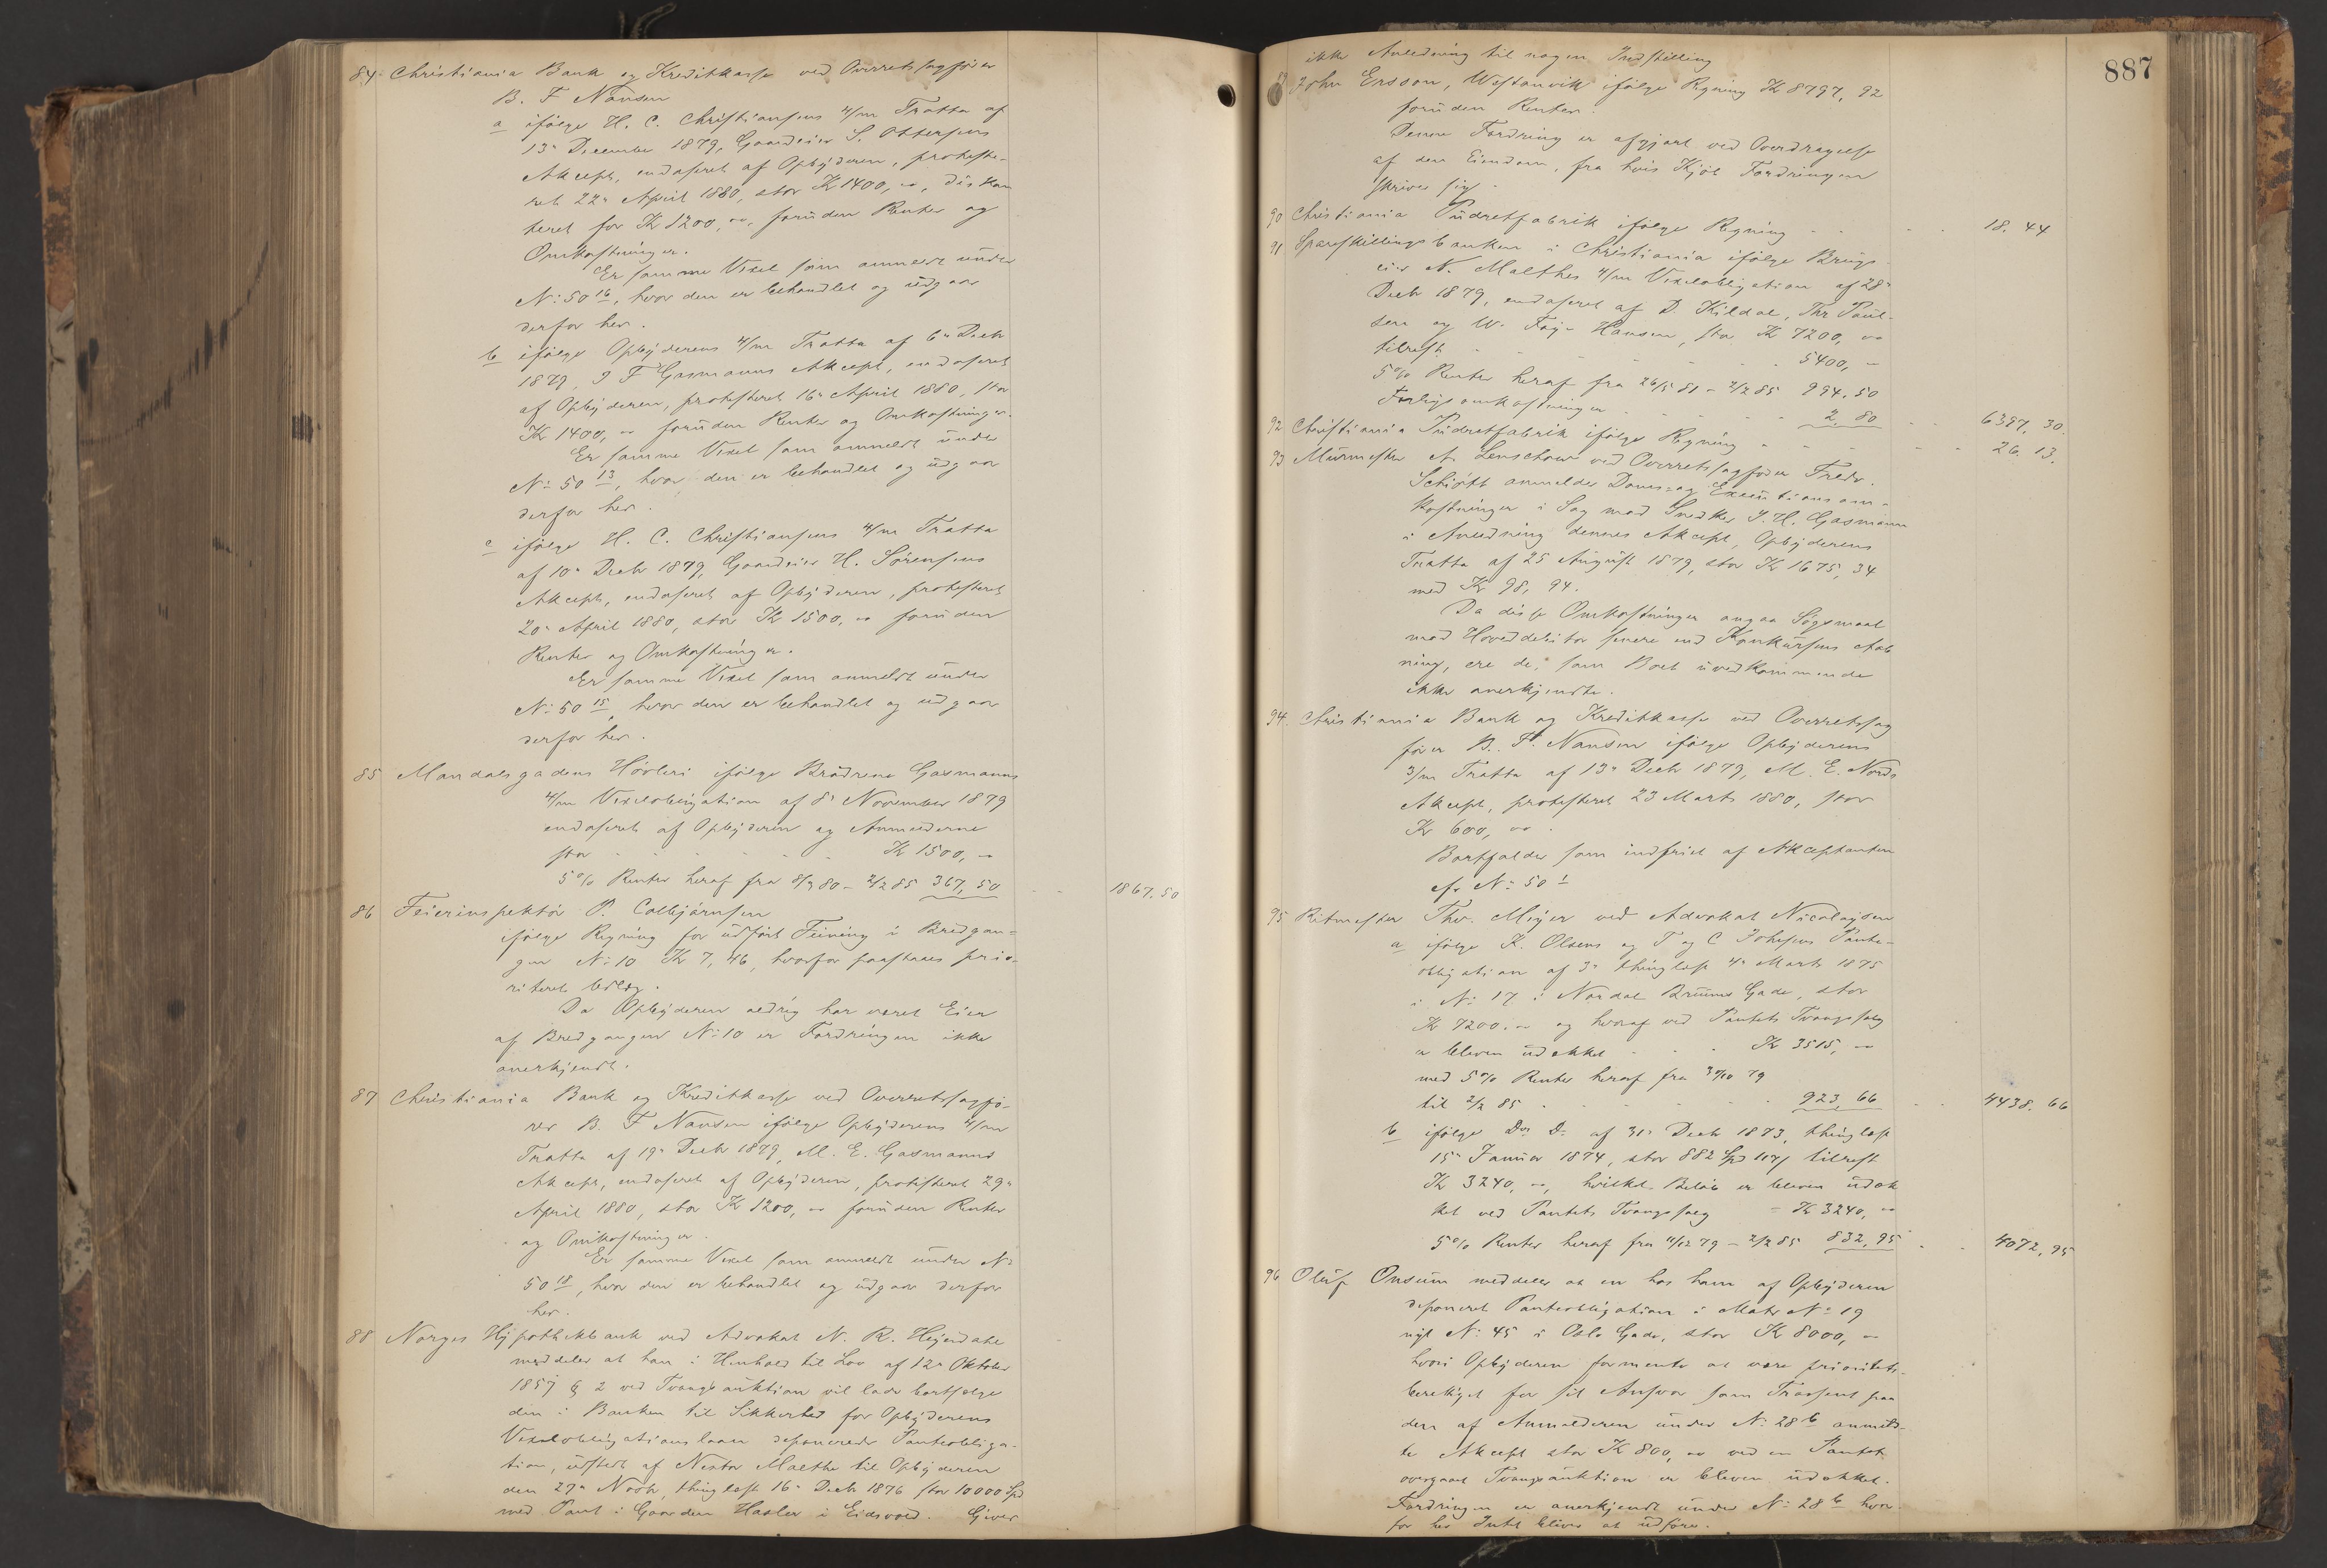 84. Christiania Bank og Kreditkasse ved Overretssagfører
B. F Nansen
a ifølge H. C. Christiansens 4/m Tratta af
13de December 1879, Gaardeier S. Ottersens
Akcept, endosseret af Opbyderen, proteste-
ret 22de April 1880, stor Kr 1400, 00, diskon
teret for Kr 1200, 00, foruden Renter og
Omkostninger.
Er samme Vexel som anmeldt under
No: 50 16, hvor den er behandlet og udgaar
derfor her.
b ifølge Opbyderens 4/m Tratta af 6te Decbr
1879, I F Gasmanns Akcept, endosseret
af Opbyderen, protesteret 16de April 1880, stor
Kr 1400, 00 foruden Renter og Omkostninger.
Er samme Vexel som anmeldt under
No: 50 13, hvor den er behandlet og udgaar
derfor her.
c ifølge H. C. Christiansens 4/m Tratta
af 10de Decbr 1879, Gaardeier H. Sørensens
Akcept, endosseret af Opbyderen, protesteret
20de April 1880, stor Kr 1500, 00 foruden
Renter og Omkostninger.
Er samme Vexel som anmeldt under
No: 50 15, hvor den er behandlet og udgaar
derfor her.
85 Mandalsgadens Høvleri ifølge Brødrene Gasmanns
4/m Vexelobligation af 8de November 1879
endosseret af Opbyderen og Anmelderne
stor - - - - - Kr 1500, 00
5% Renter heraf fra 8/3 80 - 2/2 85 367, 50 - - 1867. 50
86 Feierinspektør P. Colbjørnsen
ifølge Regning for udført Feiening i Bredgan=
gen No: 10 Kr 7, 46, hvorfor paastaaes prio-
riteret Udlæg.
Da Opbyderen aldrig har været Eier
af Bredgangen No: 10 er Fordringen ikke
anerkjendt.
87 Christiania Bank og Kreditkasse ved Overretssagfø-
rer B. F Nansen ifølge Opbyderens 4/m
Tratta af 19de Decbr 1879, M. E. Gasmanns
Akcept, endosseret af Opbyderen, protesteret 29de
April 1880, stor Kr 1200, 00 foruden Renter
og Omkostninger.
Er samme Vexel som anmeldt under No:
50 18, hvor den er behandlet og udgaar derfor
her.
88 Norges Hypothekbank ved Advokat N. R. Hejerdahl
meddeler at han i Henhold til Lov af 12te Oktober
1857 § 2 ved Tvangsauktion vil lade bortsælge
den i Banken til Sikkerhed for Opbyderens
Vexelobligationslaan deponerede Panteobliga-
tion, udstedt af Nestor Malthe til Opbyderen
den 27de Novbr, thinglæst 16de Decbr 1876 stor 10000 Spd
med Pant i Gaarden Hasler i Eidsvold. Giver
887
ikke Anledning til nogen Indstilling
89 John Ersson, Westanvik ifølge Regning Kr 8797, 92
foruden Renter.
Denne Fordring er afgjort ved Overdragelse
af den Eiendom, fra hvis Kjøb Fordringen
skriver sig.
90 Christiania Pudretfabrik ifølge Regning - - - - 18. 44
91 Spareskillingsbanken i Christiania ifølge Brugs-
eier N. Malthes 4/m Vexelobligation af 28de
Decbr 1879, endosseret af D. Kildal, Thr Paul-
sen og W. Faye Hansen, stor Kr 7200, 00
tilrest - - - - - 5400, -
5% Renter heraf fra 26/5 81 - 2/2 85 994. 50
Forligsomkostninger - - - - 2, 80 - - 6397, 30.
92 Christiania Pudretfabrik ifølge Regning - - - - 26. 13.
93 Murmester A. Lenschow ved Overretssagfører Fredr.
Schiøtt anmelder Doms- og Executionsom-
kostninger i Sag mod Snedker J. H. Gasmann
i Anledning dennes Akcept, Opbyderens
Tratta af 25 August 1879, stor Kr 1675, 34
med Kr 98, 94.
Da disse Omkostninger angaa Søgsmaal
mod Hoveddebitor senere end Konkursens Aab
ning, ere de, som Boet uvedkommende
ikke anerkjendte.
94. Christiania Bank og Kreditkasse ved Overretssag
fører B. F. Nansen ifølge Opbyderens
3/m Tratta af 13de Decbr 1879, M. E. Nords
Akcept, protesteret 23 Marts 1880, stor
Kr 600, 00.
Bortfalder som indfriet af Akceptanten
cfr No: 50 1
95 Ritmester Thv. Meyer ved Advokat Nicolaysen
a ifølge K. Olsens og T og C Johnsens Pante-
obligation af 3de thinglæst 4de Marts 1875
i No: 17 i Nordal Bruuns Gade, stor
Kr 7200. 00 og hvoraf ved Pantets Tvangssalg
er bleven udækket - - - Kr 3515, 00
med 5% Renter heraf fra 3/10 79
til 2/2 85 - - - - - 923, 66 - - 4438. 66
b ifølge Do: Do: af 31te Decbr 1873, thinglæst
15de Januar 1874, stor 882 Spd tilrest
Kr 3240, 00, hvilket Beløb er bleven udæk
ket ved Pantets Tvangssalg - Kr 3240, 00
5% Renter heraf fra 11/12 79 - 2/2 85 832, 95 - - 4072, 95
96 Oluf Onsum meddeler at en hos ham af Opbyderen
deponeret Panteobligation i Matr No: 19
nyt No: 45 i Oslo Gade, stor Kr 8000, 00
hvori Opbyderen formente at være prioritets-
berettiget for sit Ansvar som Trassent paa
den af Anmelderen under No: 28 b anmeld-
te Akcept stor Kr 800, 00 ved en Pantet
overgaaet Tvangsauktion er bleven udækket.
Fordringen er anerkjendt under No: 28 b hvor
for her Intet bliver at udføre.